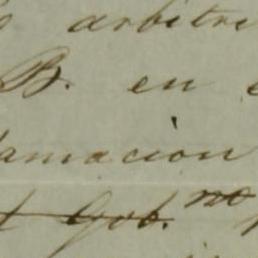 arbitr
B. en
amacion
Gob. no